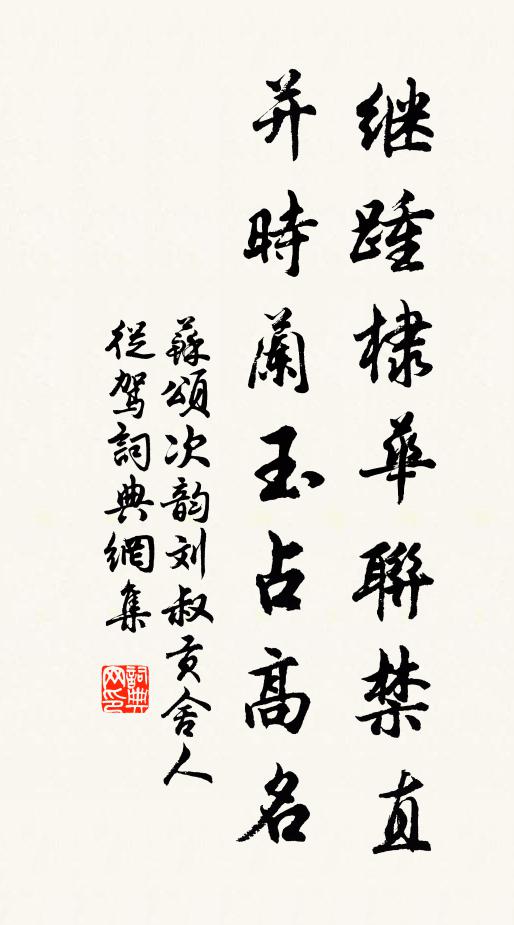 继踵棣華聯禁直
并時蘭玉占高名
蘇頌次韵刘叔贡舍人
從駕詞典網集
詞典网印